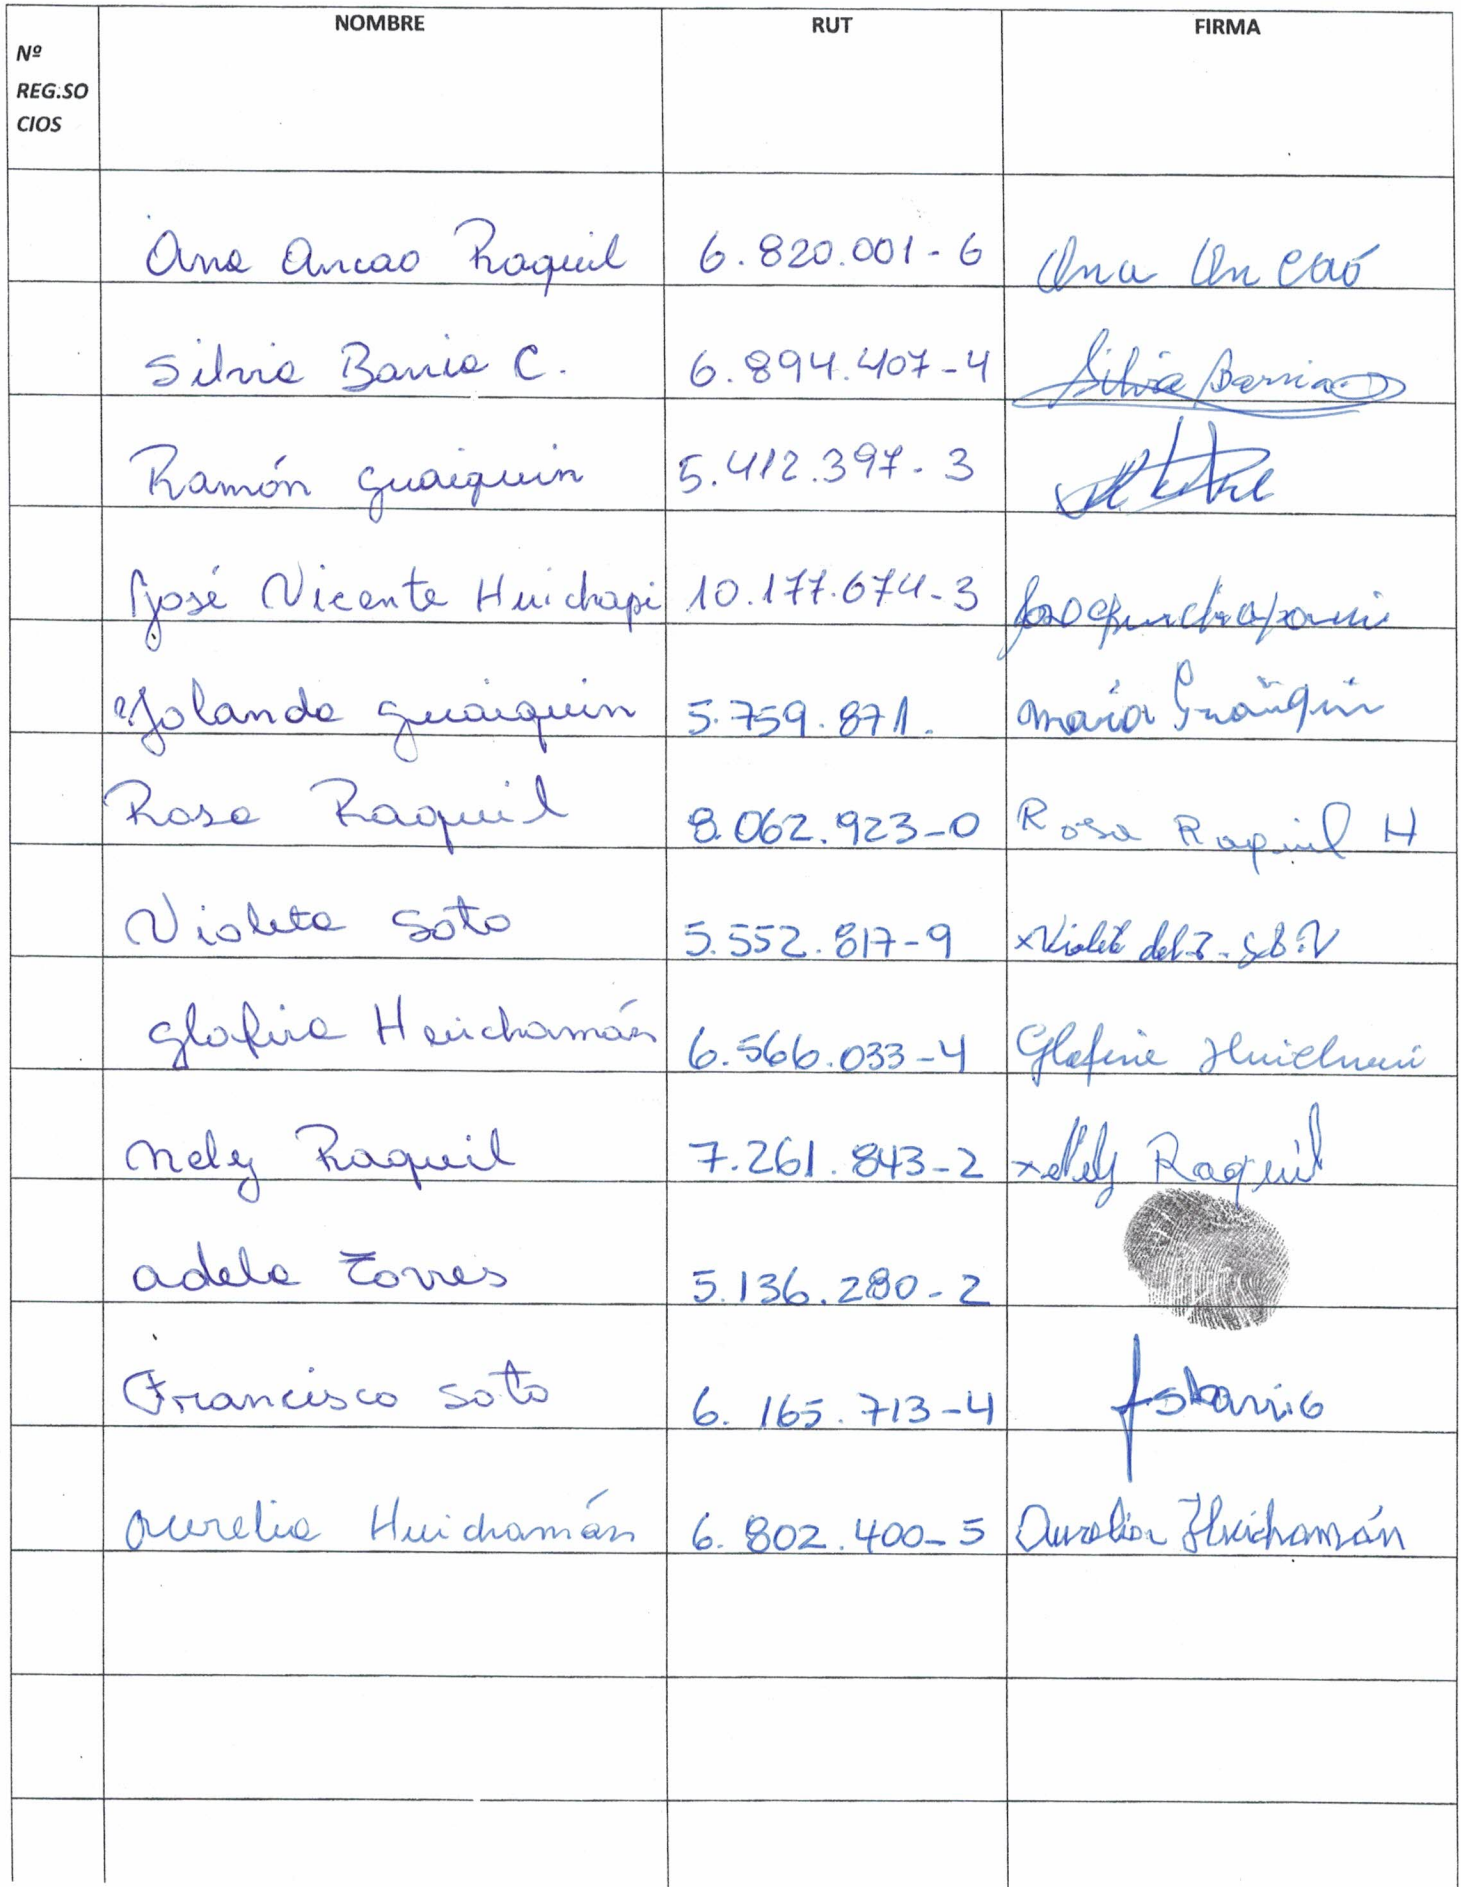 Nº NOMBRE RUT FIRMA
REG.SO
CIOS
Ana Ancao Raquil 6.820.001-6 Ana Ancaó
Silvia Barria C. 6.894.407-4 Silvia Barria
Ramón Guaiquin 5.412.397-3
José Vicente Huichapi 10.177.674-3
Yolanda Guaiquin 5.759.871. Maria Guaiquin
Rosa Raquil 8.062.923-0 Rosa Raquil H
Violeta Soto 5.552.817-9 x Violeta del
Glafira Huichamán 6.566.033-4 Glafira
Nely Raquil 7.261.843-2 x Nely Raquil
Adela Torres 5.136.280-2
Francisco Soto 6.165.713-4
Aurelia Huichamán 6.802.400-5 Aurelia Huichamán